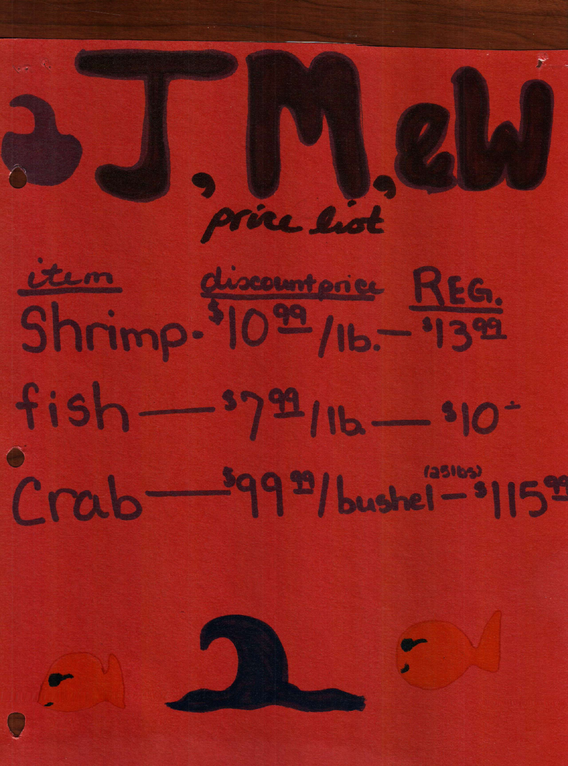 J, M, & W
price list
item discount price REG.
Shrimp - $10 99 /lb. — $13 99
fish — $7 99 /lb — $10 -
Crab — $99 99 / bushel (25 lbs) — $115 99